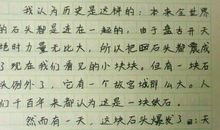 我认为历史是这样的：本来全世界
的石头都是连在一起的，由于盘古开天
辟时力量无比大，所以把四石头都震成
了现在我们看见的小块块。但有一块石
头例外了，它有一个故宫城那么大。人
们千百年来都认为这是一块妖石。
然而有一天，这块石头爆发了。天